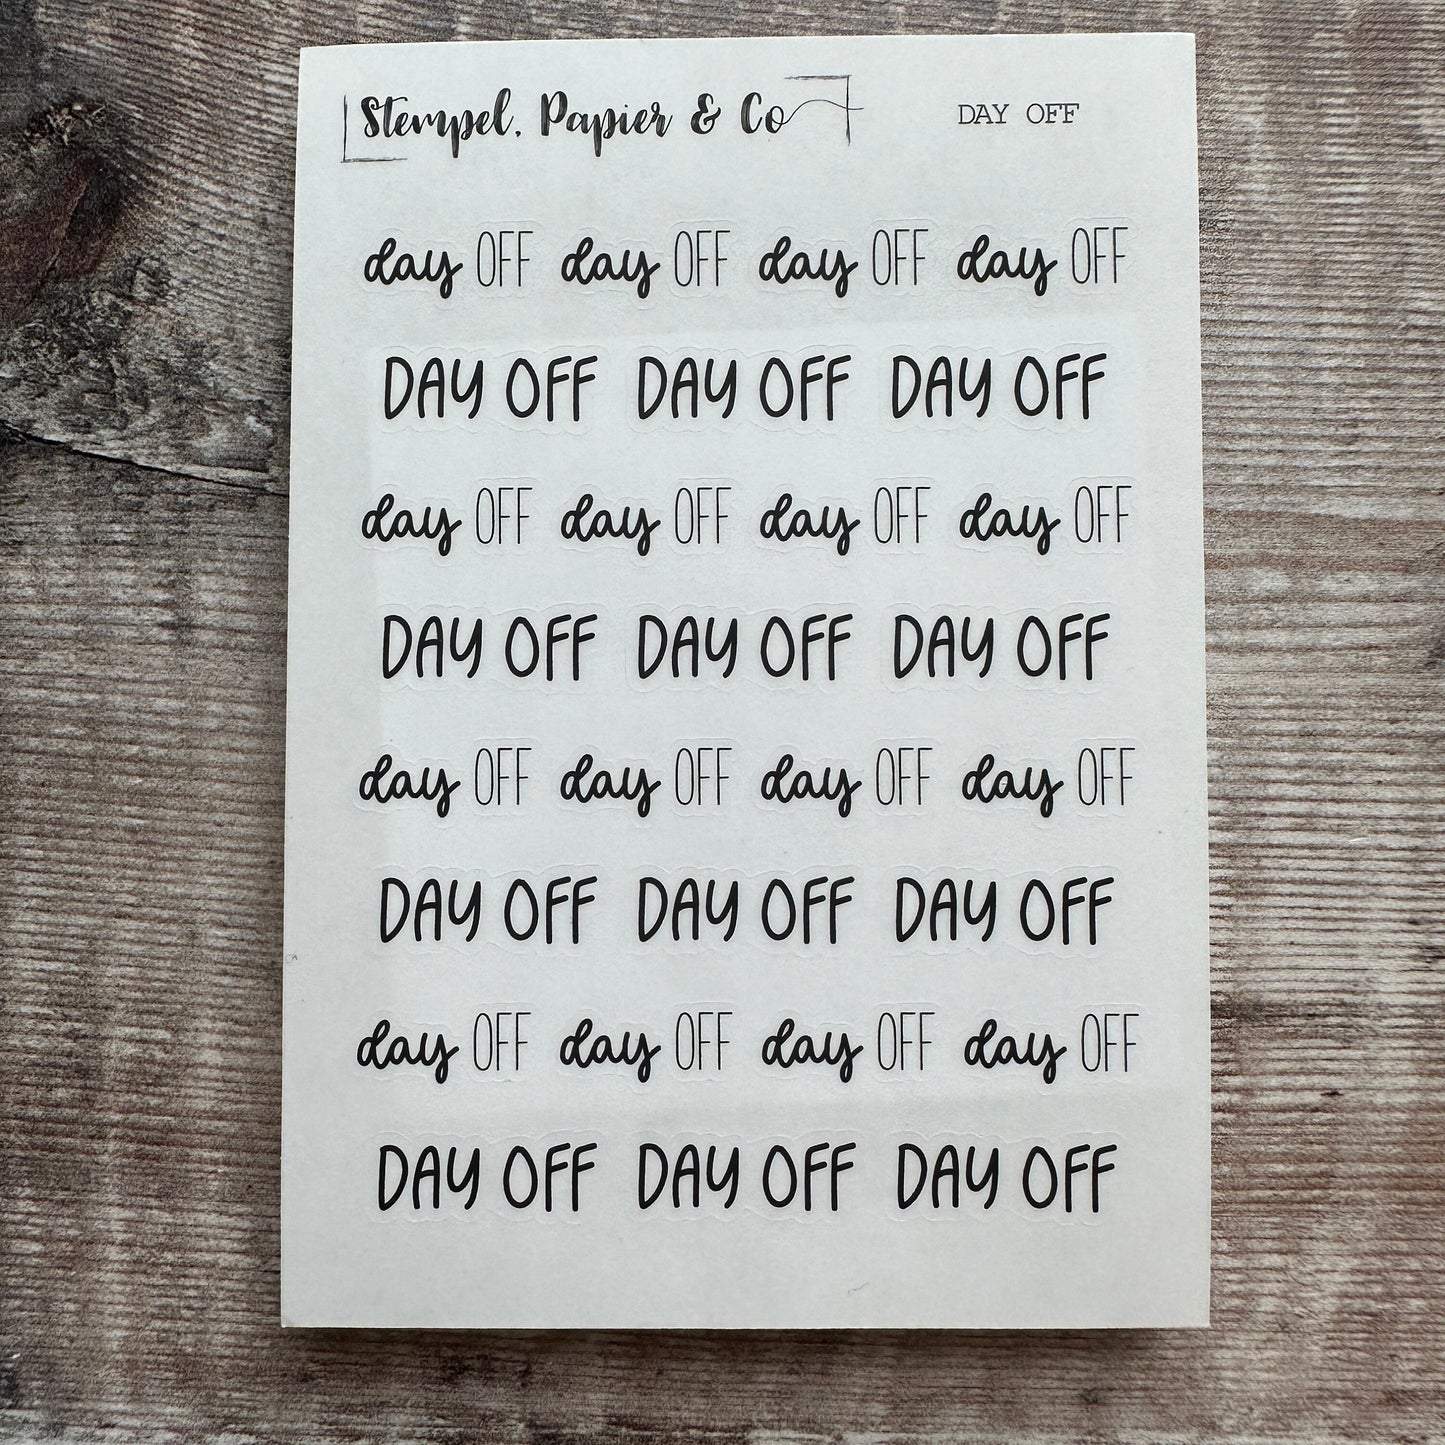 Stempel, Papier & Co DAY OFF
day OFF day OFF day OFF day OFF
DAY OFF DAY OFF DAY OFF
day OFF day OFF day OFF day OFF
DAY OFF DAY OFF DAY OFF
day OFF day OFF day OFF day OFF
DAY OFF DAY OFF DAY OFF
day OFF day OFF day OFF day OFF
DAY OFF DAY OFF DAY OFF